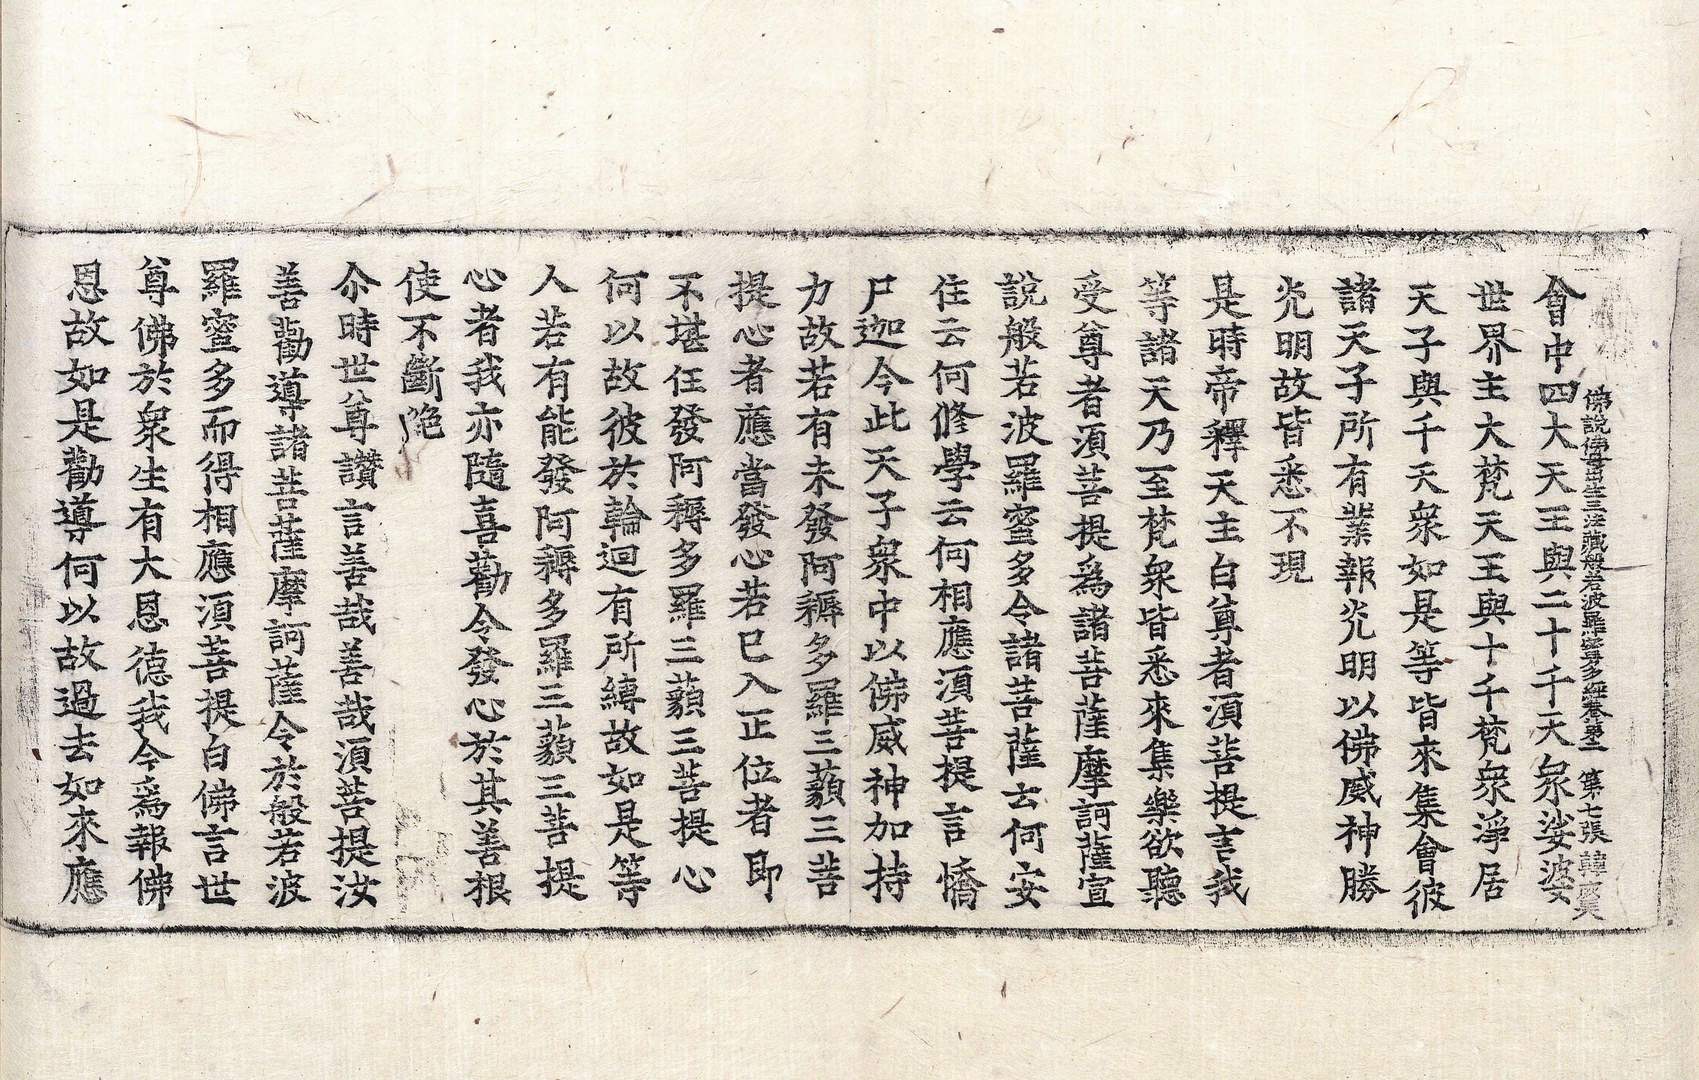 佛說佛母出生三法藏般若波羅蜜多經卷第二 第七張 韓
會中四大天王與二十千天衆娑婆
世界主大梵天王與十千梵衆淨居
天子與千天衆如是等皆來集會彼
諸天子所有業報光明以佛威神勝
光明故皆悉不現
是時帝釋天主白尊者湏菩提言我
等諸天乃至梵衆皆悉來集樂欲聽
受尊者湏菩提爲諸菩薩摩訶薩宣
說般若波羅蜜多令諸菩薩云何安
住云何修學云何相應湏菩提言憍
尸迦今此天子衆中以佛威神加持
力故若有未發阿耨多羅三藐三菩
提心者應當發心若已入正位者即
不堪任發阿耨多羅三藐三菩提心
何以故彼於輪迴有所縛故如是等
人若有能發阿耨多羅三藐三菩提
心者我亦隨喜勸令發心於其善根
使不斷絶
尒時世尊讚言善哉善哉湏菩提汝
善勸導諸菩薩摩訶薩令於般若波
羅蜜多而得相應湏菩提白佛言世
尊佛於衆生有大恩德我今爲報佛
恩故如是勸導何以故過去如來應